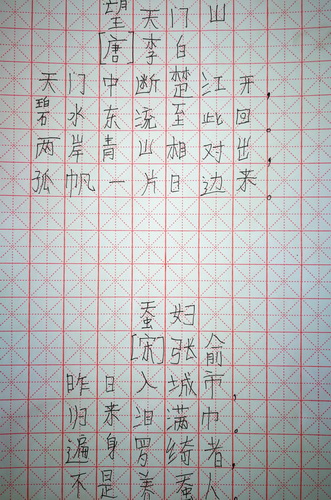 望天门山
[唐]李白
天门中断楚江开,
碧水东流至此回。
两岸青山相对出,
孤帆一片日边来。
蚕妇
[宋]张俞
昨日入城市,
归来泪满巾。
遍身罗绮者,
不是养蚕人